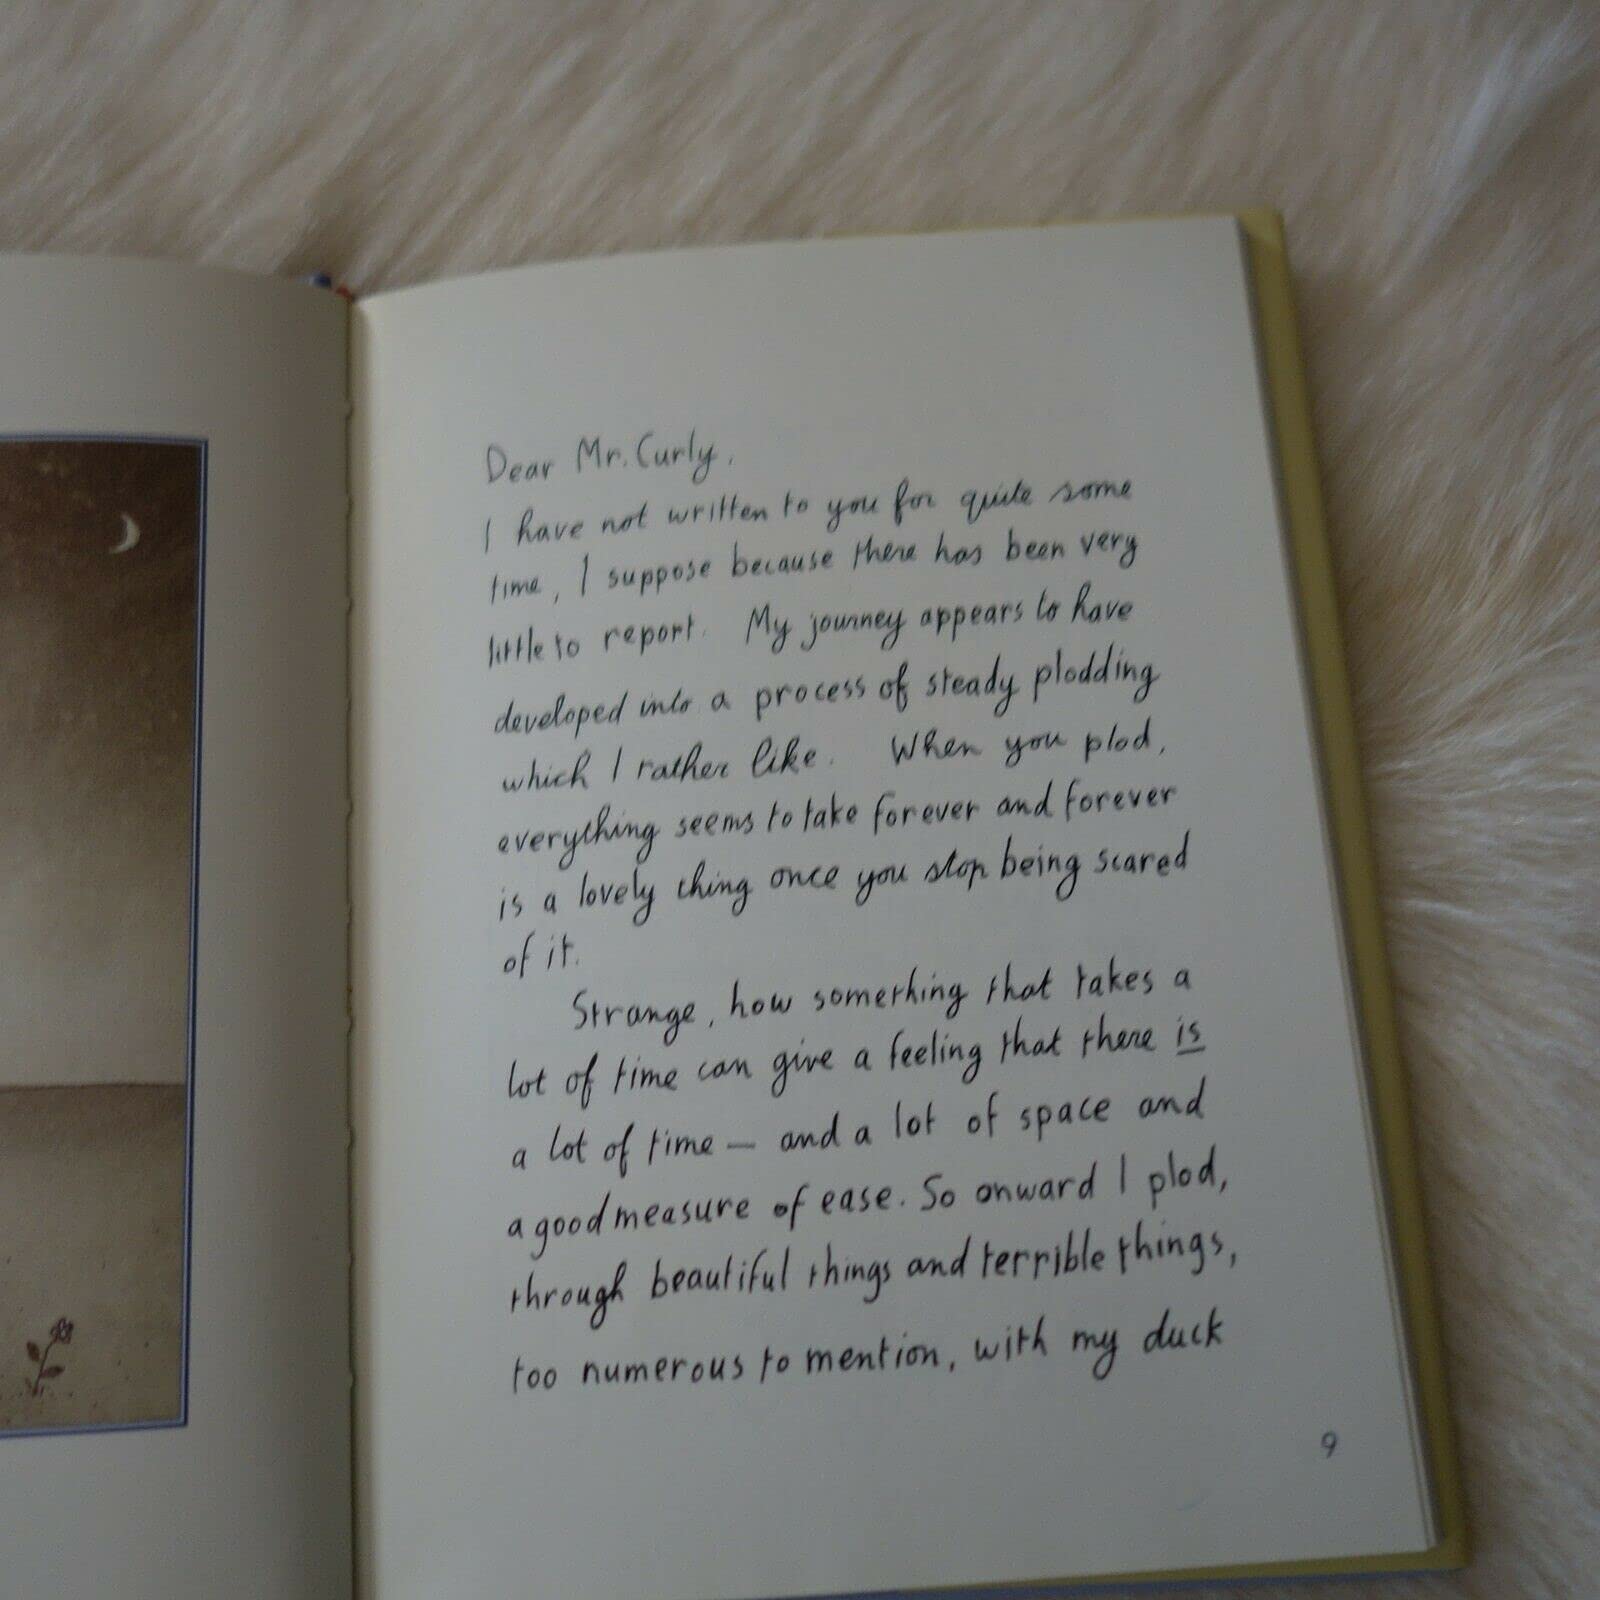 Dear Mr. Curly,
I have not written to you for quite some
time, I suppose because there has been very
little to report. My journey appears to have
developed into a process of steady plodding
which I rather like. When you plod,
everything seems to take forever and forever
is a lovely thing once you stop being scared
of it.
Strange, how something that takes a
lot of time can give a feeling that there is
a lot of time — and a lot of space and
a good measure of ease. So onward I plod,
through beautiful things and terrible things,
too numerous to mention, with my duck
9